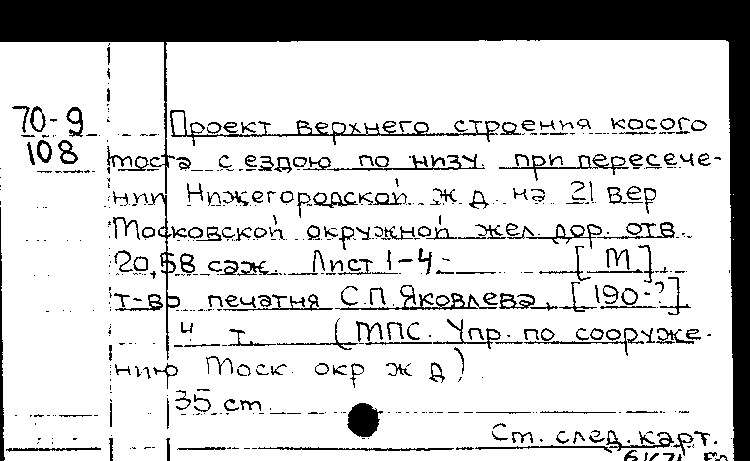 70-9
108
Проект верхнего строения косого
моста с ездою по низу. при пересече-
нии Нижегородской ж д на 21 вер
Московской окружной жел. дор. отв.
20,58 саж. Лист 1-4.- [М.],
т-во печатня С.П. Яковлева, [190-?].
4 т. (МПС. Упр. по сооруже-
нию Моск. окр ж д)
35 cm
См. след. карт.